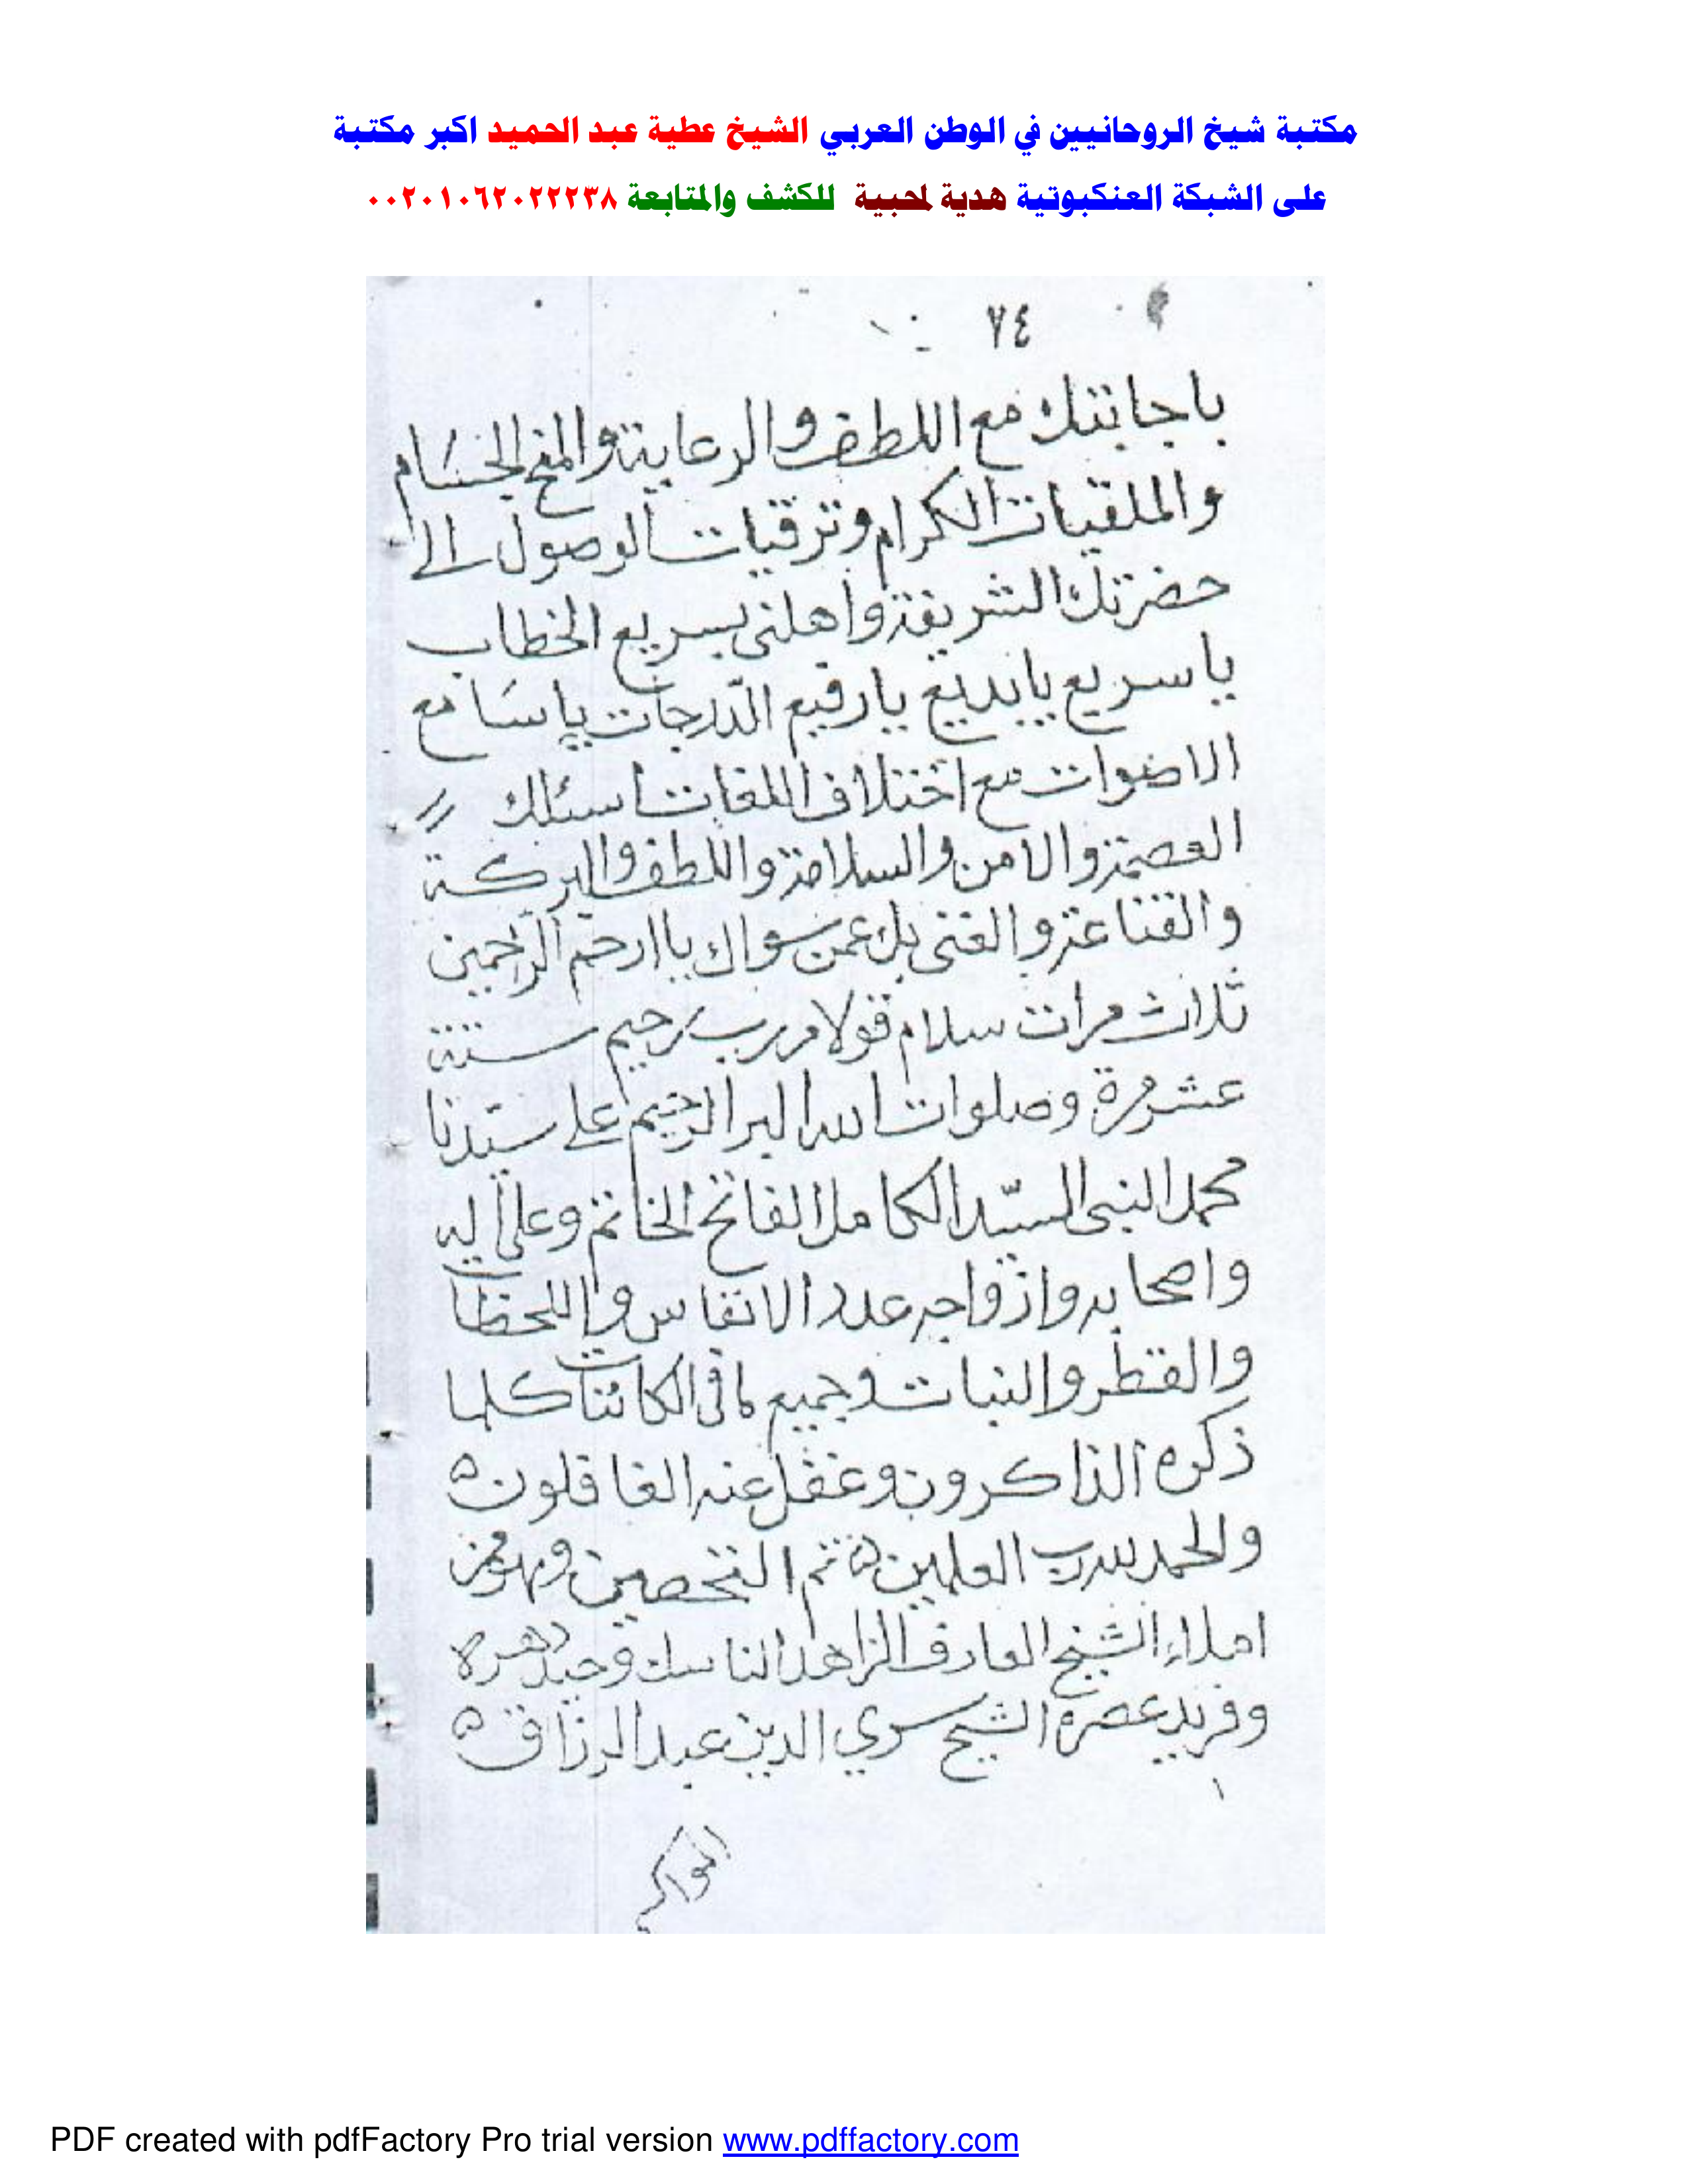 مكتبة شيخ الروحانيين في الوطن العربي الشيخ عطية عبد الحميد اكبر مكتبة
على الشبكة العنكبوتية هدية لمحبية للكشف والمتابعة ٠٠٢٠١٠٦٢٠٢٢٢٣٨
٧٤
باجابتك مع اللطف والرعاية والمنح الجسام
والملقيات الكرام وترقيات الوصول الى
حضرتك الشريفة واهلنى بسريع الخطاب
يا سريع يا بديع يا رفيع الدّرجات يا سَامع
الاصوات مع اختلاف اللغات اسئلك
العصمة والامن والسلامة واللطف والبركة
والقناعة والغنى بك عمن سواك يا ارحم الراحمين
ثلاث مرات سلام قولا من رب رحيم ستة
عشر مرة وصلوات الله البر الرحيم على سيّدنا
محمد النبى السيّد الكامل الفاتح الخاتم وعلى اله
واصحابه وازواجه عدد الانفاس واللحظات
والقطر والنبات وجميع مافى الكائنات كلما
ذكره الذاكرون وغفل عنه الغافلون ه
والحمد لله رب العلمين ه تم التحصين وهو من
املاء الشيخ العارف الزاهد الناسك وحيد دهره
وفريد عصره الشيخ سري الدين عبد الرزاق ه
PDF created with pdfFactory Pro trial version www.pdffactory.com